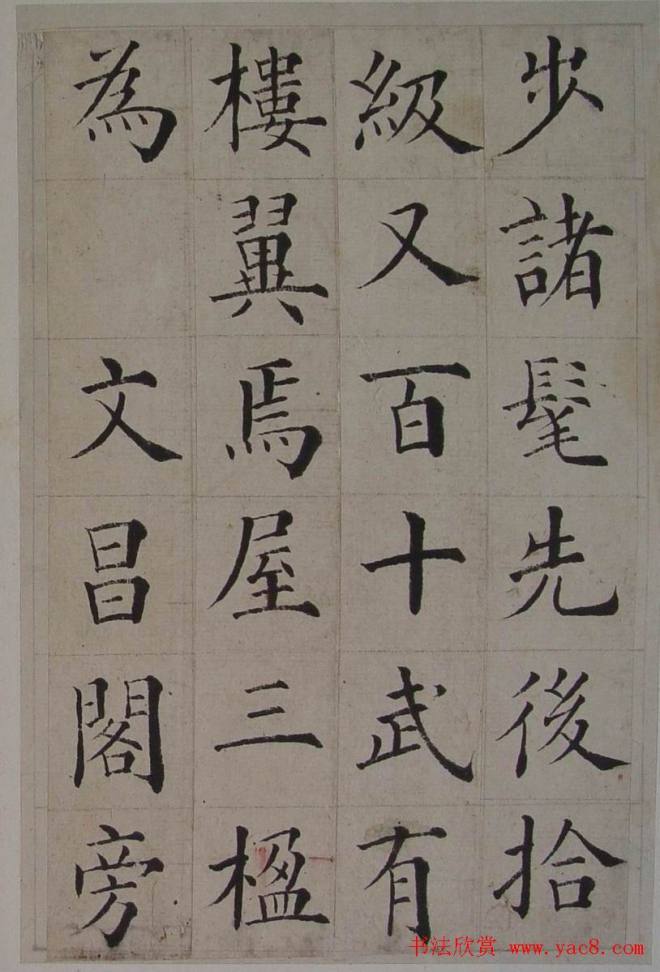 步諸髦先後拾
級又百十武有
樓翼焉屋三楹
為 文昌閣旁
书法欣赏 www.yac8.com